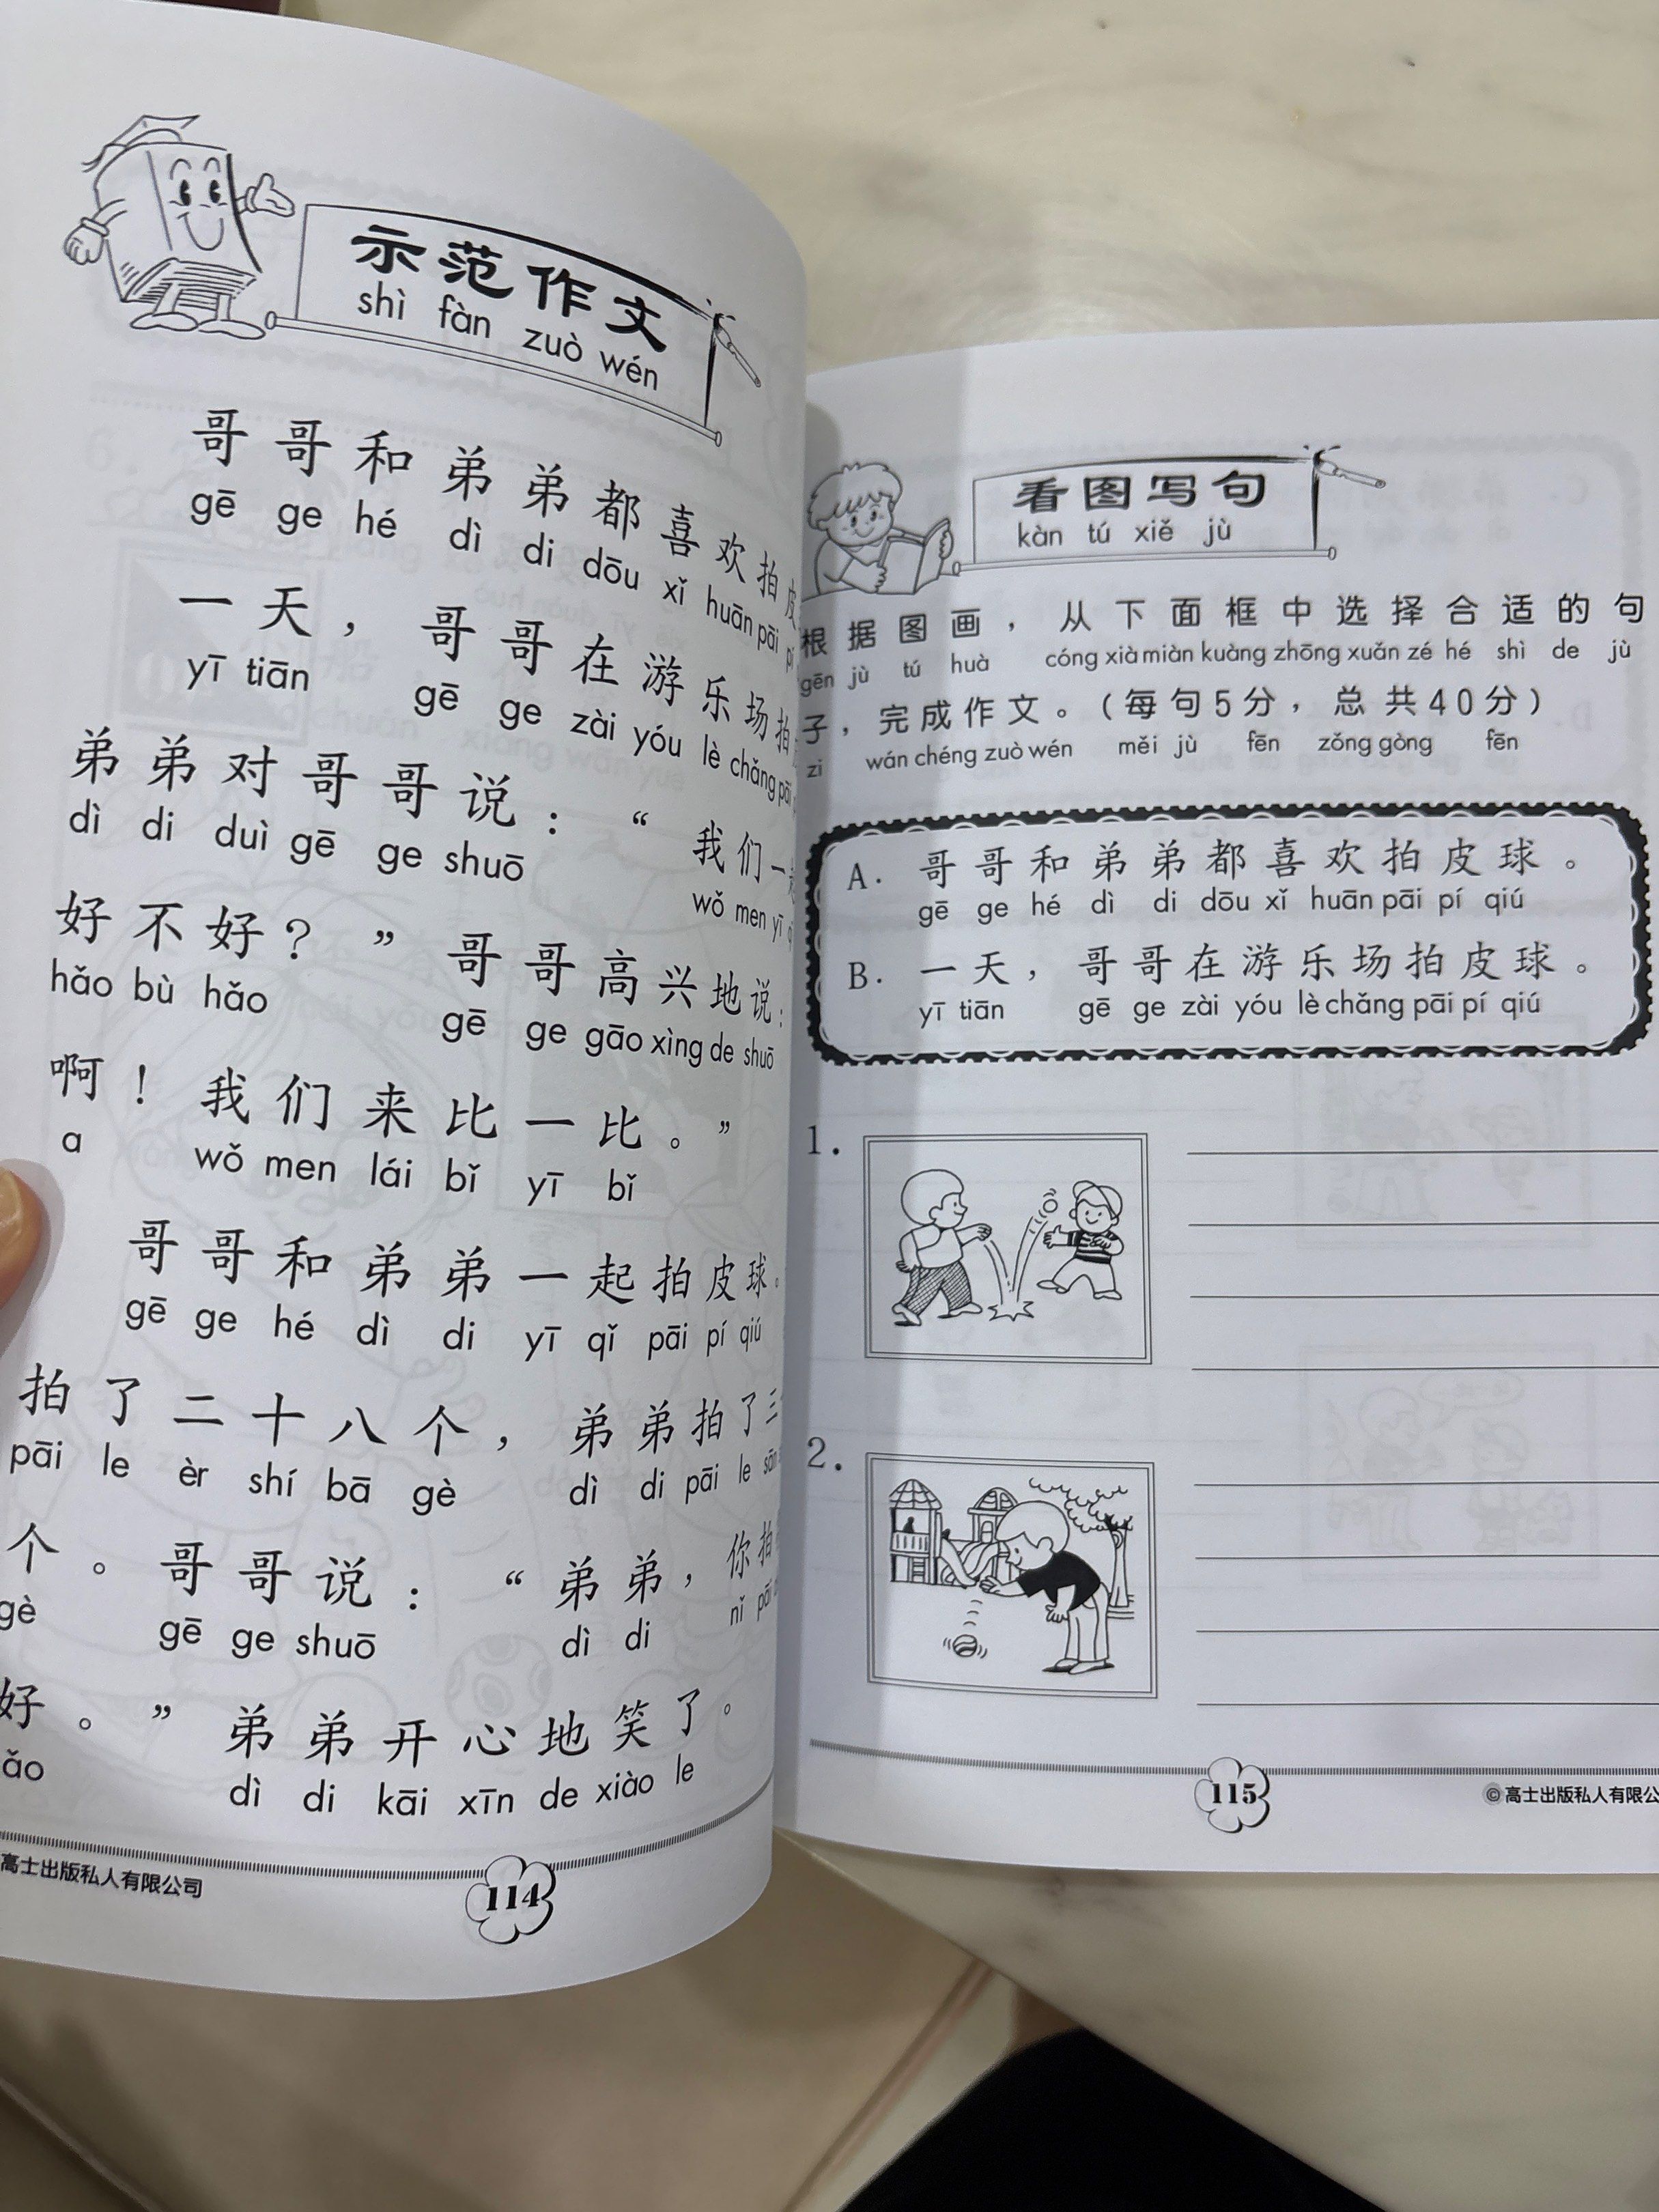 示范作文
shì fàn zuò wén
哥哥和弟弟都喜欢拍皮
gē ge hé dì di dōu xǐ huān pāi pí
一天，哥哥在游乐场拍
yī tiān gē ge zài yóu lè chǎng pāi
弟弟对哥哥说：“我们一
dì di duì gē ge shuō wǒ men yī
好不好？”哥哥高兴地说：
hǎo bù hǎo gē ge gāo xìng de shuō
啊！我们来比一比。”
a wǒ men lái bǐ yī bǐ
哥哥和弟弟一起拍皮球。
gē ge hé dì di yī qǐ pāi pí qiú
拍了二十八个，弟弟拍了三
pāi le èr shí bā gè dì di pāi le sān
个。哥哥说：“弟弟，你拍
gè gē ge shuō dì di nǐ pāi
好。”弟弟开心地笑了。
ǎo dì di kāi xīn de xiào le
高士出版私人有限公司
114
看图写句
kàn tú xiě jù
根据图画，从下面框中选择合适的句
gēn jù tú huà cóng xià miàn kuàng zhōng xuǎn zé hé shì de jù
子，完成作文。（每句5分，总共40分）
zi wán chéng zuò wén měi jù fēn zǒng gòng fēn
A. 哥哥和弟弟都喜欢拍皮球。
gē ge hé dì di dōu xǐ huān pāi pí qiú
B. 一天，哥哥在游乐场拍皮球。
yī tiān gē ge zài yóu lè chǎng pāi pí qiú
1.
2.
115
©高士出版私人有限公